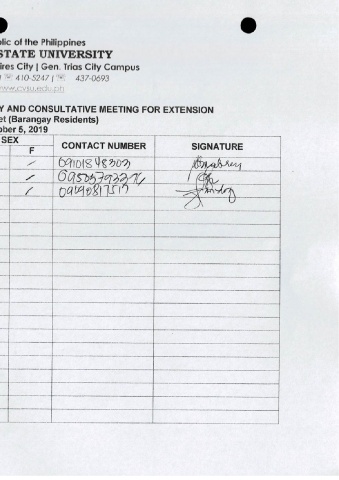 blic of the Philippines
STATE UNIVERSITY
ires City | Gen. Trias City Campus
410-5247 | 437-0693
www.cvsu.edu.ph
Y AND CONSULTATIVE MEETING FOR EXTENSION
et (Barangay Residents)
ober 5, 2019
SEX
F CONTACT NUMBER SIGNATURE
09101848303